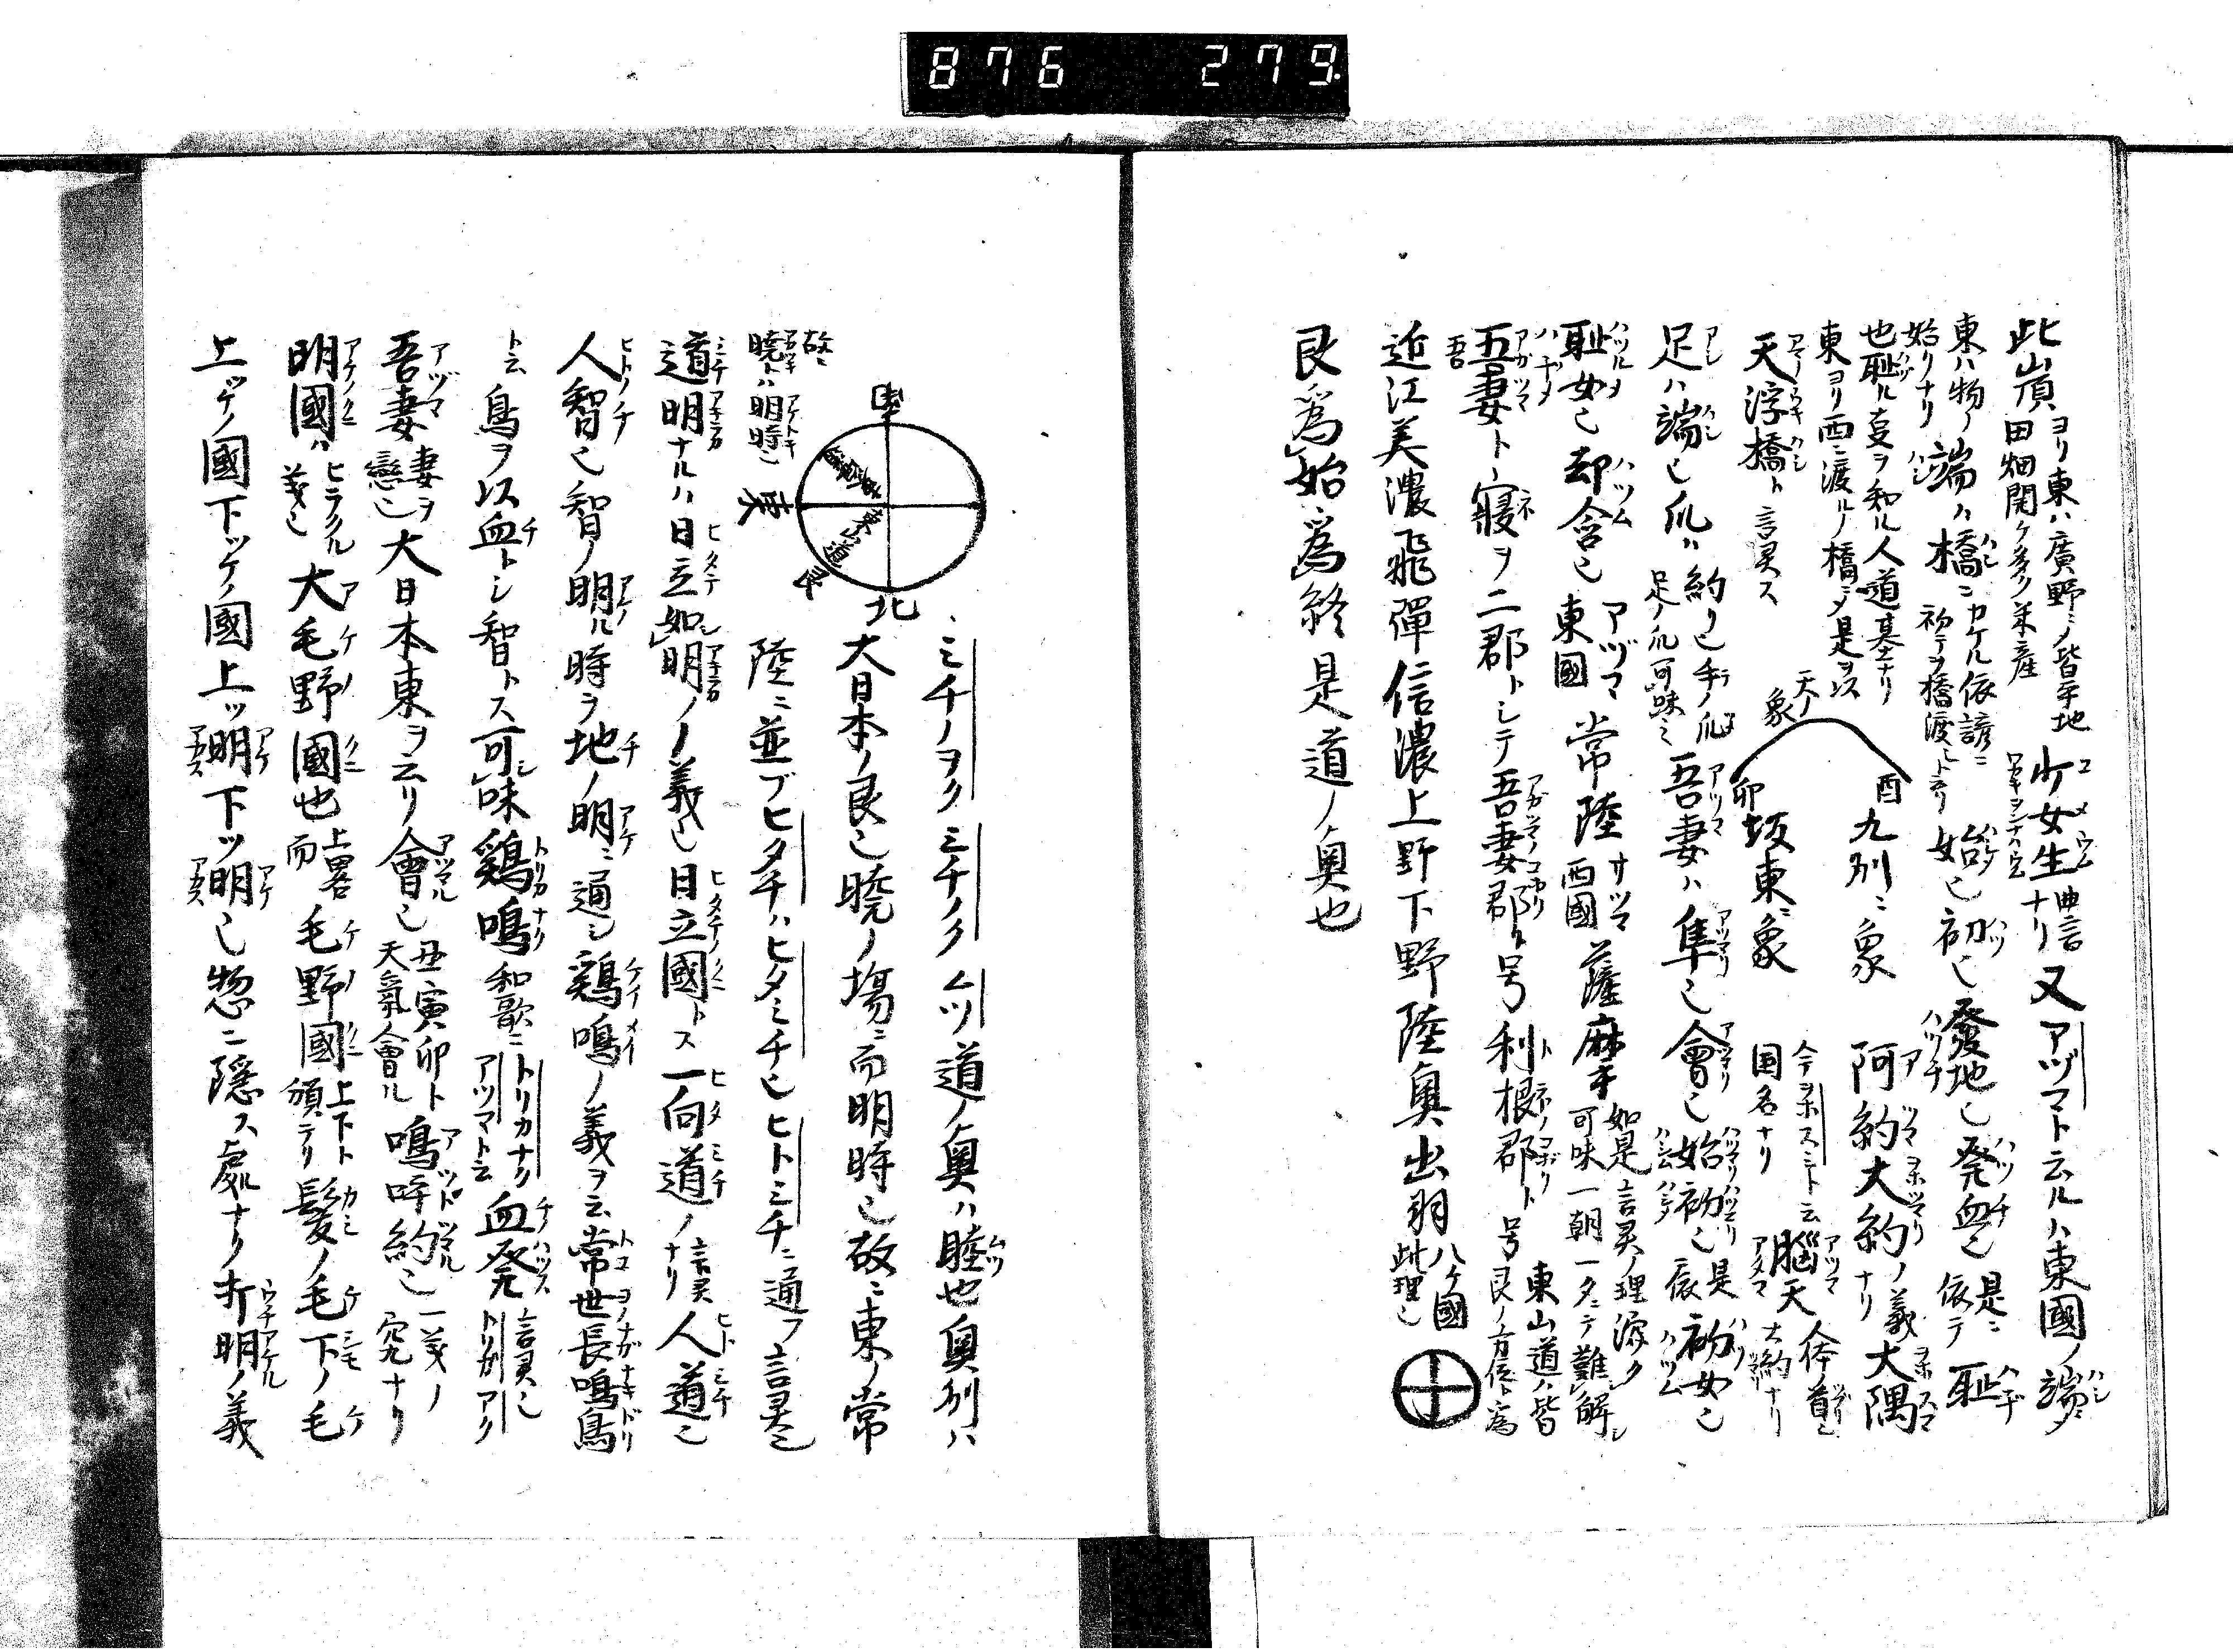 876 279
此嶺ヨリ東ハ廣野ニノ皆平地
田畑開ケ多ク米産
少女生ナリ 又アヅマト云ルハ東國ノ端
東ハ物ノ始リナリ 端ハ橋ニカケル依諺ニ初テヲ橋渡ト云リ 始也初也發地也発血也是ニ依テ耻
也耻ル夏ヲ和ル人道基ナリ
東ヨリ西ニ渡ルノ橋ニメ是ヲ以
天ノ象 酉 卯
九列ニ象 阿約大約ノ義ナリ大隅
天浮橋ト言灵ス
坂東ニ象 今ヲホスミト云国名ナリ 腦天
足ハ端也爪ハ約リ也手ノ爪足ノ爪可味 吾妻ハ隼也會也始初也是 初女也
耻女也却含也東國 常陸 西國 薩摩 如是言灵ノ理深ク可味一朝一夕ニテ難解シ
吾妻ト寝ヲ二郡トシテ吾妻郡ト号利根郡ト号 東山道ハ皆艮ノ方位ト為
近江美濃飛彈信濃上野下野陸奥出羽八ケ國此理也
艮為始為終是道ノ奥也
ミチノヲク ミチノク ムツ 道ノ奥ハ睦也奥列ハ
大日本ノ艮也曉ノ場ニ而明時也故ニ東ノ常
陸ニ並ブヒタチハヒタミチ也ヒトミチニ通フ言灵也
北 東 艮 東山道
故ニ曉トハ明時也
道明ナルハ日立如明ノ義也日立國トス一向道ノ言灵ナリ人道也
人智也智ノ明ル時ヲ地ノ明ニ通シ鶏鳴ノ義ヲ云常世長鳴鳥
ト云 鳥ヲ以血トシ智トス可味鶏鳴和歌ニトリカナクアツマト云血発言灵也
吾妻 妻ヲ戀也 大日本東ヲ云リ會也丑寅卯ト天氣會ル鳴呼約也一義ノ究ナリ
明國ハヒラクル義也大毛野國也上畧而毛野國上下ト頒テリ髪ノ毛下ノ毛
上ゲノ國下ッケノ國上ッ明下ッ明也惣ニ隠ス處ナリ打明ノ義